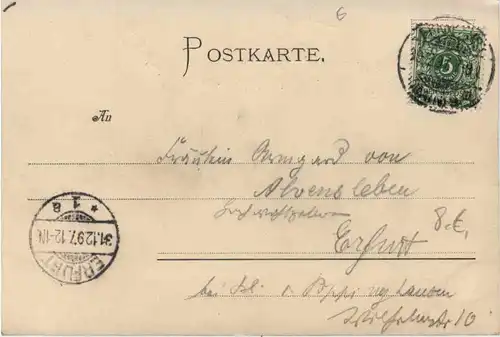 6
POSTKARTE.
5
An
Fräulein Armgard von
Alvensleben
Hochwohlgeboren
8.-€,
Erfurt
bei Frl. v.
Wilhelmstr 10
ERFURT
31.12.97. 12-1N.
* 1 a